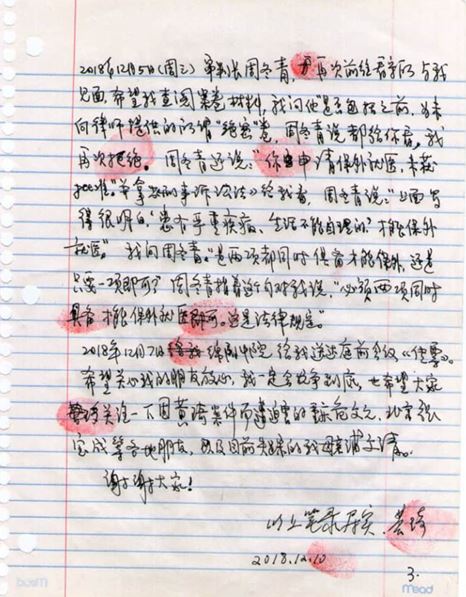 2018年12月5日(周三)审判长周冬青,再次前往看守所与我
见面,希望我查阅案卷材料,我问他"是否包括之前,未
向律师提供的所谓"绝密"卷,周冬青说都给你看,我
再次拒绝。周冬青还说:"你申请保外就医,未获
批准。"并拿出《刑事诉讼法》给我看,周冬青说:"上面写
得很明白'患有严重疾病、生活不能自理的'才能保外
就医"。我问周冬青:"是两项都同时具备才能保外,还是
只要一项即可?"周冬青指着这句对我说,"必须两项同时
具备才能保外就医即可。这是法律规定"。
2018年12月7日 绵阳中院给我送达庭前会议《传票》。
希望关心我的朋友放心,我一定会抗争到底,也希望大家
关注一下因黄琦案件而遭迫害的
等各地朋友,以及目前失踪的我母亲蒲文清。
谢谢大家!
以上笔录属实. 黄琦
2018.12.10
3.
Mead
Mead